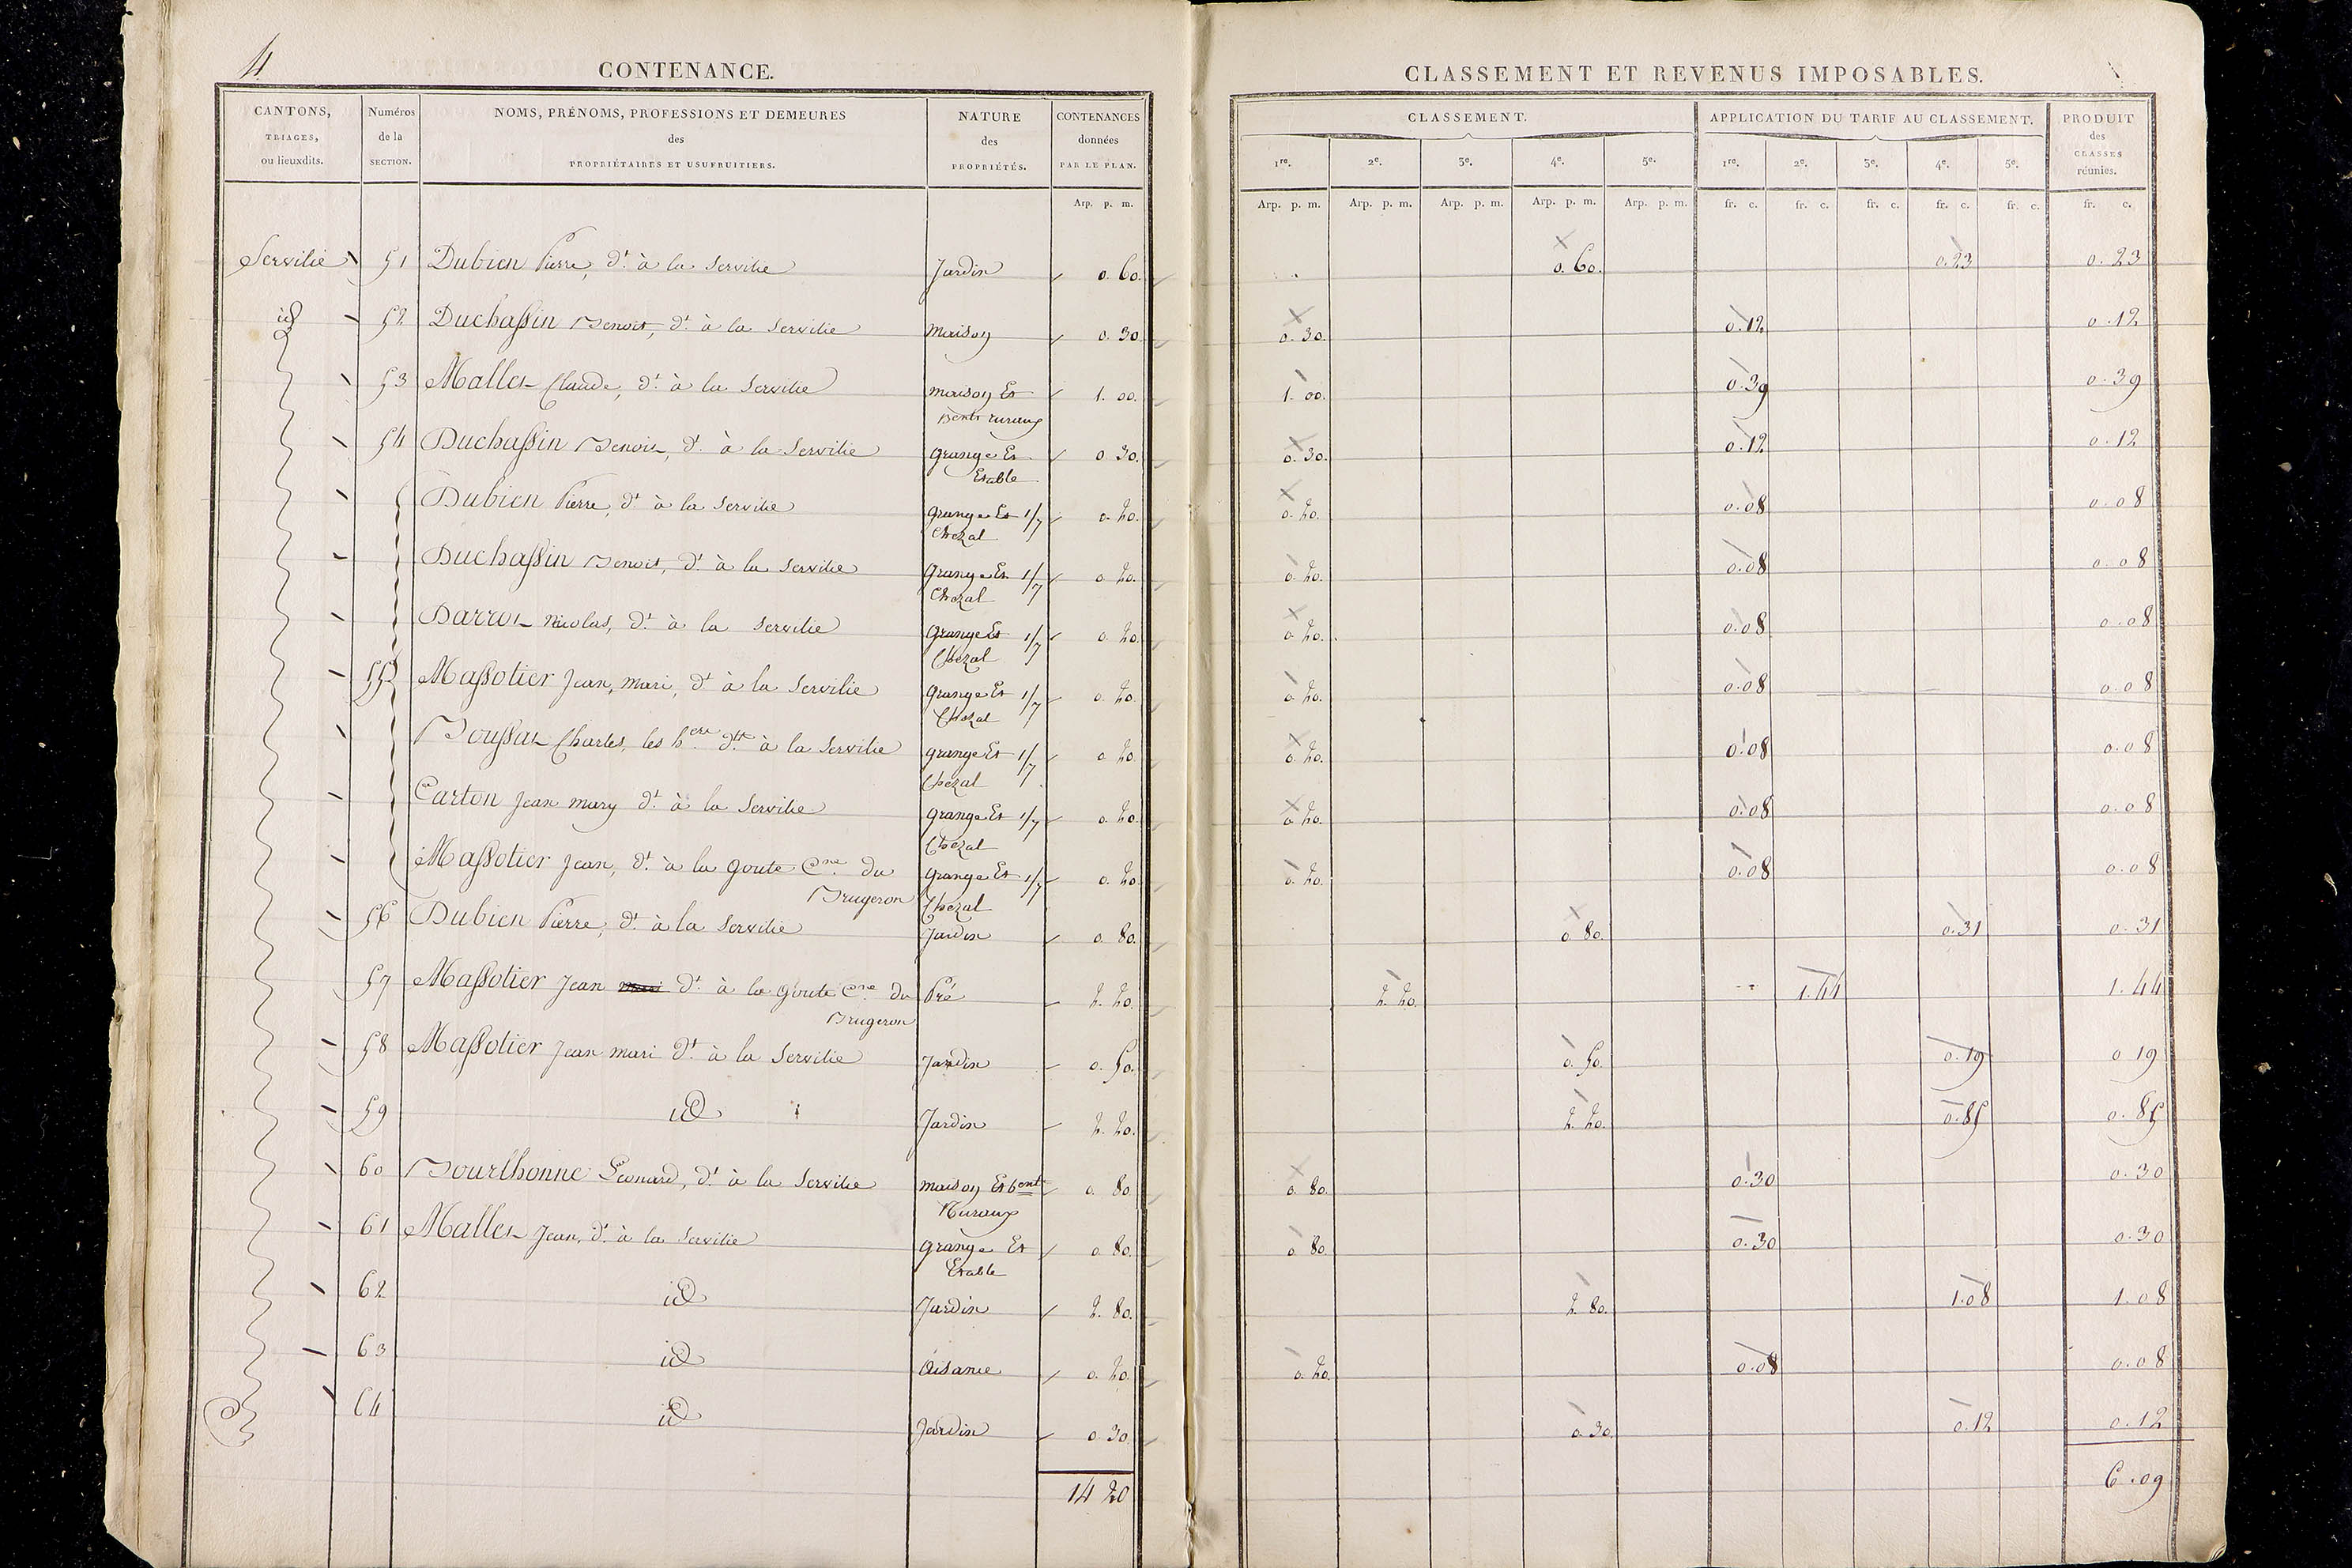 4
CONTENANCE.
CLASSEMENT ET REVENUS IMPOSABLES.
CANTONS, TRIAGES, ou lieuxdits.
Numéros de la SECTION.
NOMS, PRÉNOMS, PROFESSIONS ET DEMEURES des PROPRIÉTAIRES ET USUFRUITIERS.
NATURE des PROPRIÉTÉS.
CONTENANCES données PAR LE PLAN.
CLASSEMENT.
APPLICATION DU TARIF AU CLASSEMENT.
PRODUIT des CLASSES réunies.
1re. 2e. 3e. 4e. 5e. 1re. 2e. 3e. 4e. 5e.
Arp. p. m. Arp. p. m. Arp. p. m. Arp. p. m. Arp. p. m. Arp. p. m. fr. c. fr. c. fr. c. fr. c. fr. c. fr. c.
Servilie 51 Dubien Pierre, dt. à la Servilie Jardin 0. 60. 0. 60. 0.23 0. 23
id 52 Duchassin Benoit, dt. à la Servilie maison 0. 30 0. 30. 0.12 0.12
53 Mallet Claude, dt. à la Servilie maison Et 1. 00. 1. 00. 0.39 0.39
Bents ruraux
54 Duchassin Benoit, dt. à la Servilie grange Et 0 30. 0. 30. 0.12 0.12
Etable
Dubien Pierre, dt. à la Servilie grange Et 1/7 0. 20. 0. 20. 0.08 0.08
Chezal
Duchassin Benoit, dt. à la Servilie grange Et 1/7 0. 20. 0. 20. 0.08 0.08
Chezal
Barrot Nicolas, dt. à la Servilie grange Et 1/7 0. 20. 0. 20. 0.08 0.08
Chezal
55 Massotier Jean, mari, dt. à la Servilie grange Et 1/7 0. 20. 0. 20. 0.08 0.08
Chezal
Boussat Charles, les hers dts. à la Servilie grange Et 1/7 0. 20. 0. 20. 0.08 0.08
Chezal
Carton Jean mary dt. à la Servilie grange Et 1/7 0. 20. 0. 20. 0.08 0.08
Chezal
Massotier Jean, dt. à la Goute Cne. du grange Et 1/7 0. 20. 0. 20. 0.08 0.08
Brugeron Chezal
56 Dubien Pierre, dt. à la Servilie Jardin 0. 80. 0. 80. 0.31 0. 31
57 Massotier Jean dt. à la Goute Cne. du Pré 2. 20. 2. 20. 1.44 1.44
Brugeron
58 Massotier Jean mari dt. à la Servilie Jardin 0. 50. 0. 50. 0.19 0 19
59 id Jardin 2. 20. 2. 20. 0.85 0. 85
60 Bourlhonne Léonard, dt. à la Servilie maison Et bent 0. 80 0. 80. 0.30 0.30
Ruraux
61 Mallet Jean, dt. à la Servilie grange Et 0. 80. 0 80. 0.30 0.30
Etable
62 id Jardin 2. 80. 2. 80. 1.08 1.08
63 id aisance 0. 20. 0. 20. 0.08 0.08
64 id Jardin 0. 30 0. 30. 0.12 0.12
14 20 6.09